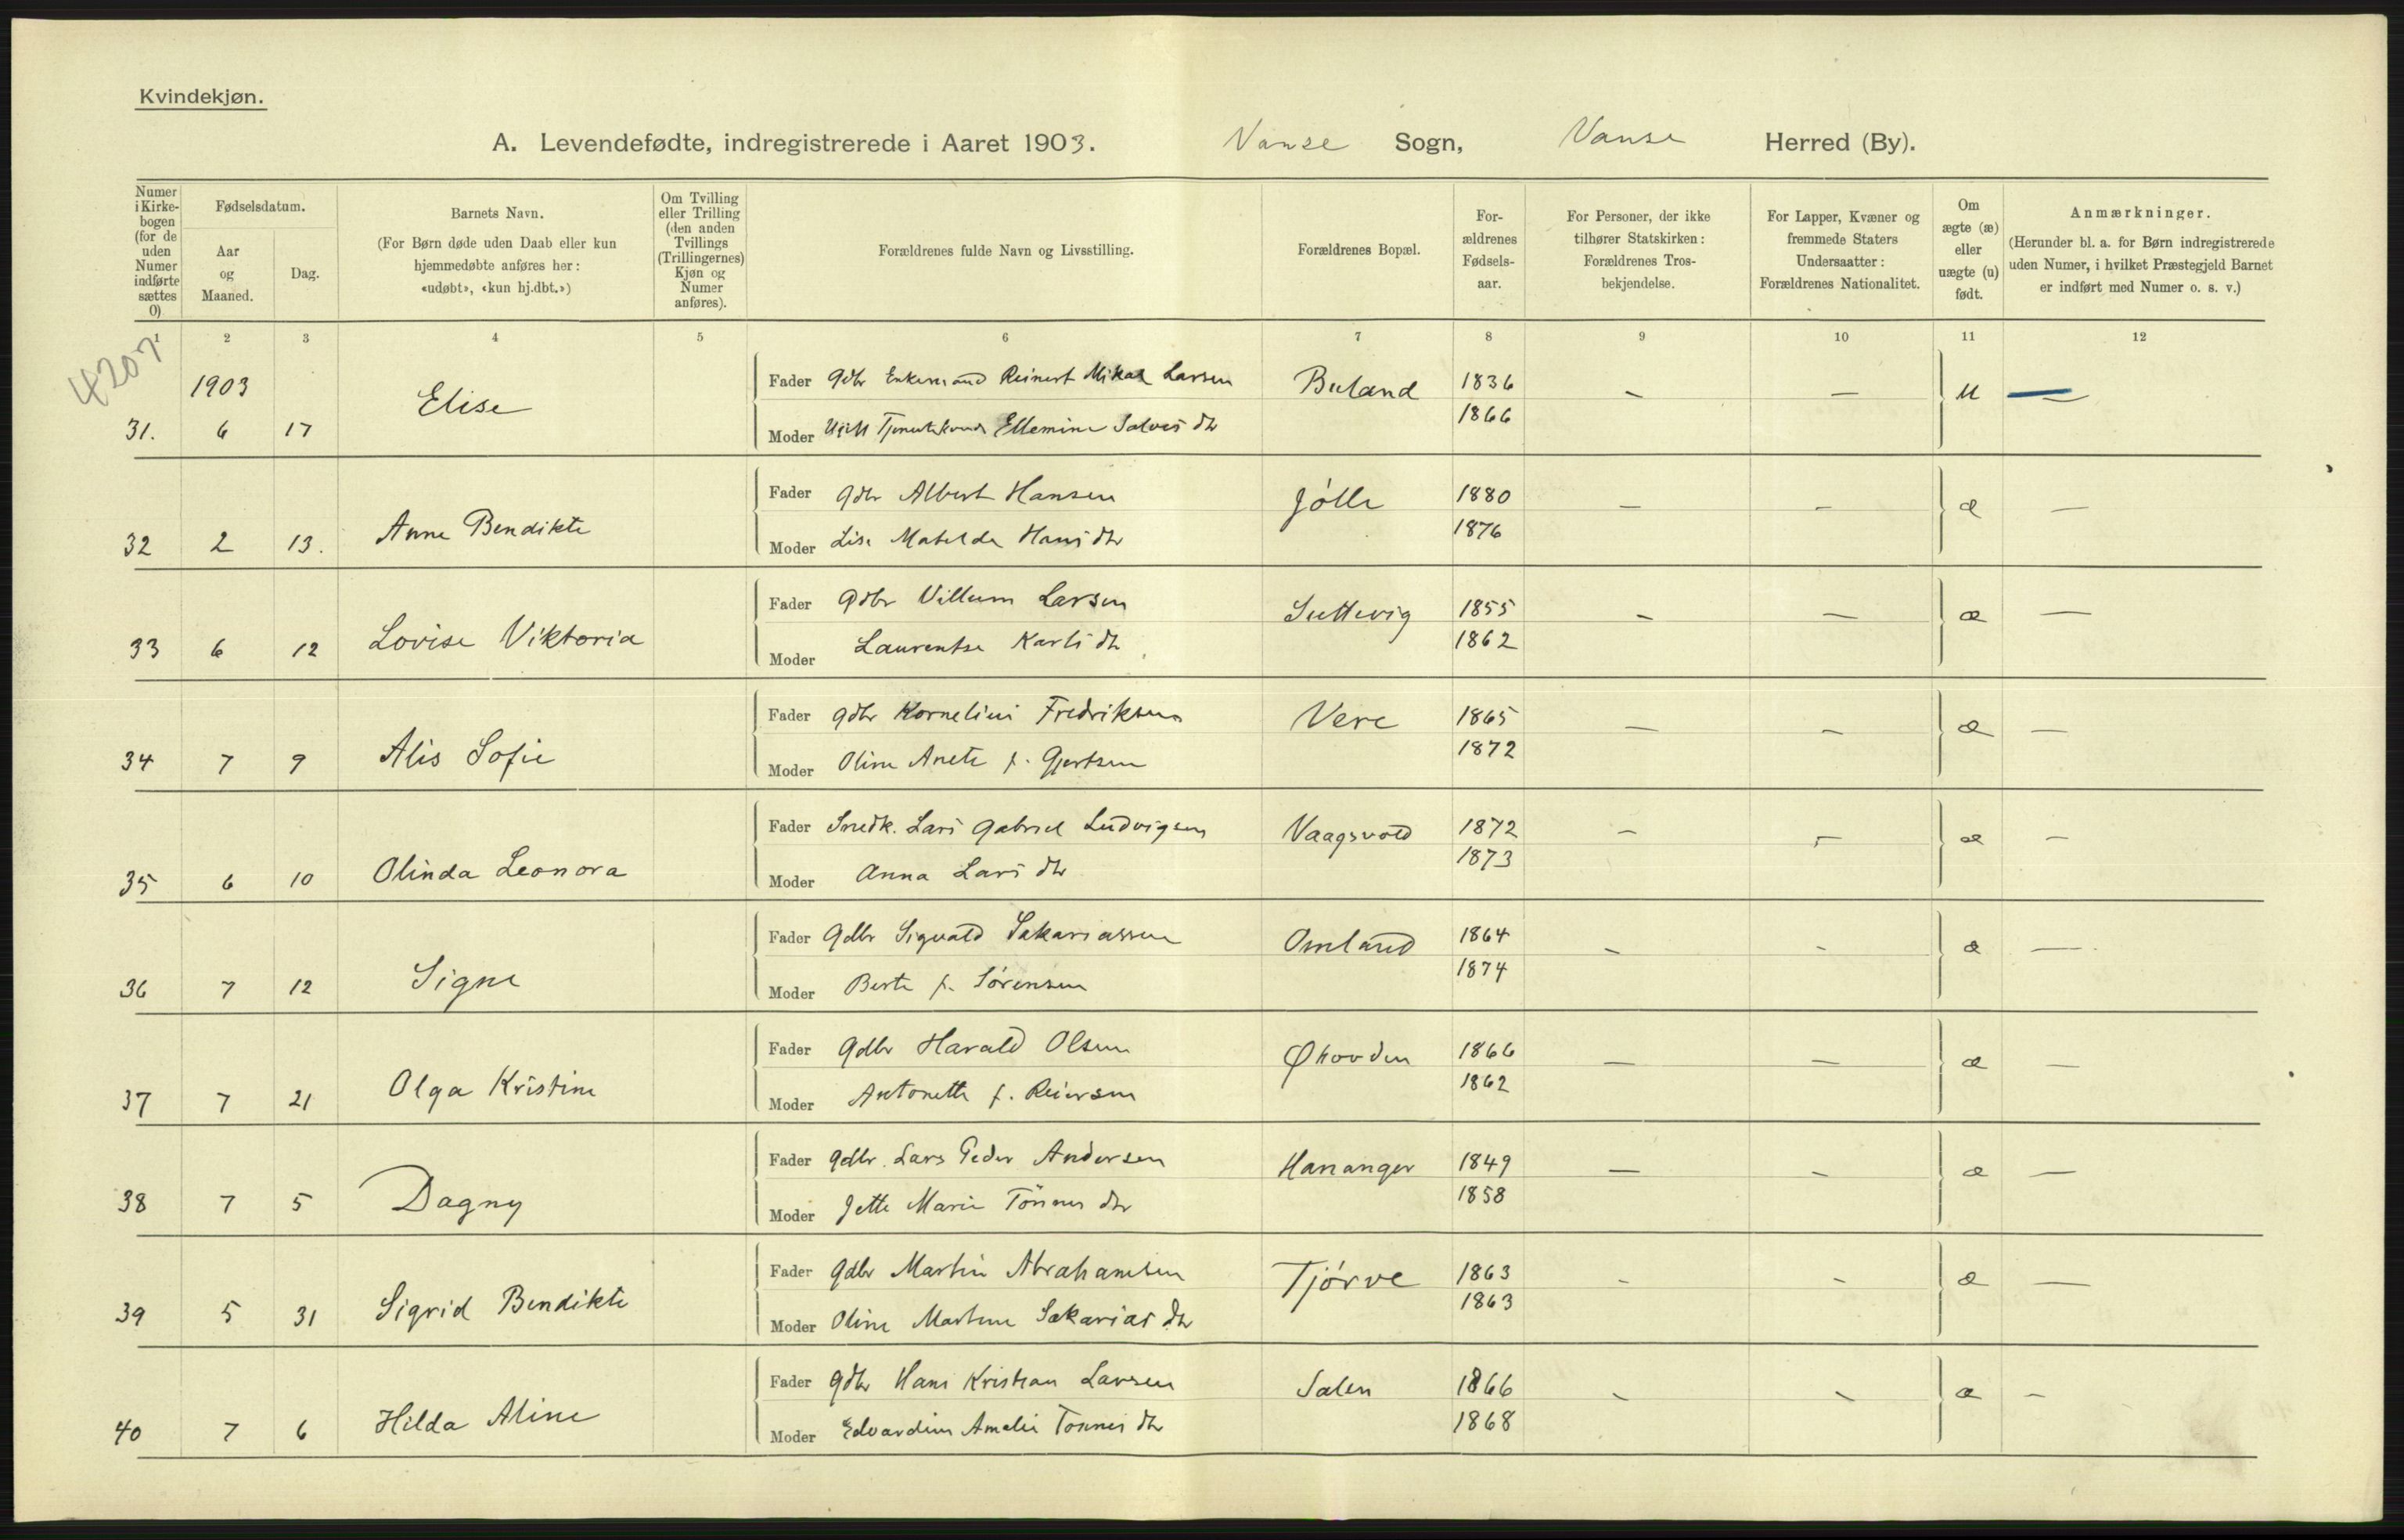 Kvindekjøn.
A. Levendefødte, indregistrerede i Aaret 1903. Vanse Sogn, Vanse Herred (By).
Numer i Kirkebogen (for de uden Numer indførte sættes 0)
Fødselsdatum.
Aar og Maaned.
Dag.
Barnets Navn.
(For Børn døde uden Daab eller kun hjemmedøbte anføres her: «udøbt», «kun hj.dbt.»)
Om Tvilling eller Trilling (den anden Tvillings (Trillingernes) Kjøn og Numer anføres).
Forældrenes fulde Navn og Livsstilling.
Forældrenes Bopæl.
Forældrenes Fødselsaar.
For Personer, der ikke tilhører Statskirken: Forældrenes Trosbekjendelse.
For Lapper, Kvæner og fremmede Staters Undersaatter: Forældrenes Nationalitet.
Om ægte (æ) eller uægte (u) født.
Anmærkninger.
(Herunder bl. a. for Børn indregistrerede uden Numer, i hvilket Præstegjeld Barnet er indført med Numer o. s. v.)
1 2 3 4 5 6 7 8 9 10 11 12
4207
1903
Fader Gdbr Enkemand Reinert Mikal Larsen Buland 1836 – – u –
31. 6 17 Elise
Moder Ugift Ellemine Salves dtr 1866
Fader Gdbr Albert Hansen Jølle 1880 – – æ –
32 2 13. Anne Bendikte
Moder Lise Matilda Hans dtr 1876
Fader Gdbr Villum Larsen Luttevig 1855 – – æ –
33 6 12 Lovise Viktoria
Moder Laurentse Karls dtr 1862
Fader Gdbr Kornelius Fredriksen Vere 1865 – – æ –
34 7 9 Alis Sofie
Moder Oline Anete f. Gjertsen 1872
Fader Snedk. Lars Gabriel Ludvigsen Vaagsvold 1872 – – æ –
35 6 10 Olinda Leonora
Moder Anna Lars dtr 1873
Fader Gdbr Sigvald Sakariassen Omland 1864 – – æ –
36 7 12 Signe
Moder Berte f. Sørensen 1874
Fader Gdbr Harald Olsen Østhovden 1866 – – æ –
37 7 21 Olga Kristine
Moder Antonette f. Reiersen 1862
Fader Gdbr. Lars Peder Andersen Hananger 1849 – – æ –
38 7 5 Dagny
Moder Jette Marie Tönnes dtr 1858
Fader Gdbr Martin Abrahamsen Tjørve 1863 – – æ –
39 5 31 Sigrid Bendikte
Moder Oline Martine Sakarias dtr 1863
Fader Gdbr Hans Kristian Larsen Salen 1866 – – æ –
40 7 6 Hilda Aline
Moder Edvardine Amalie Tonnes dtr 1868